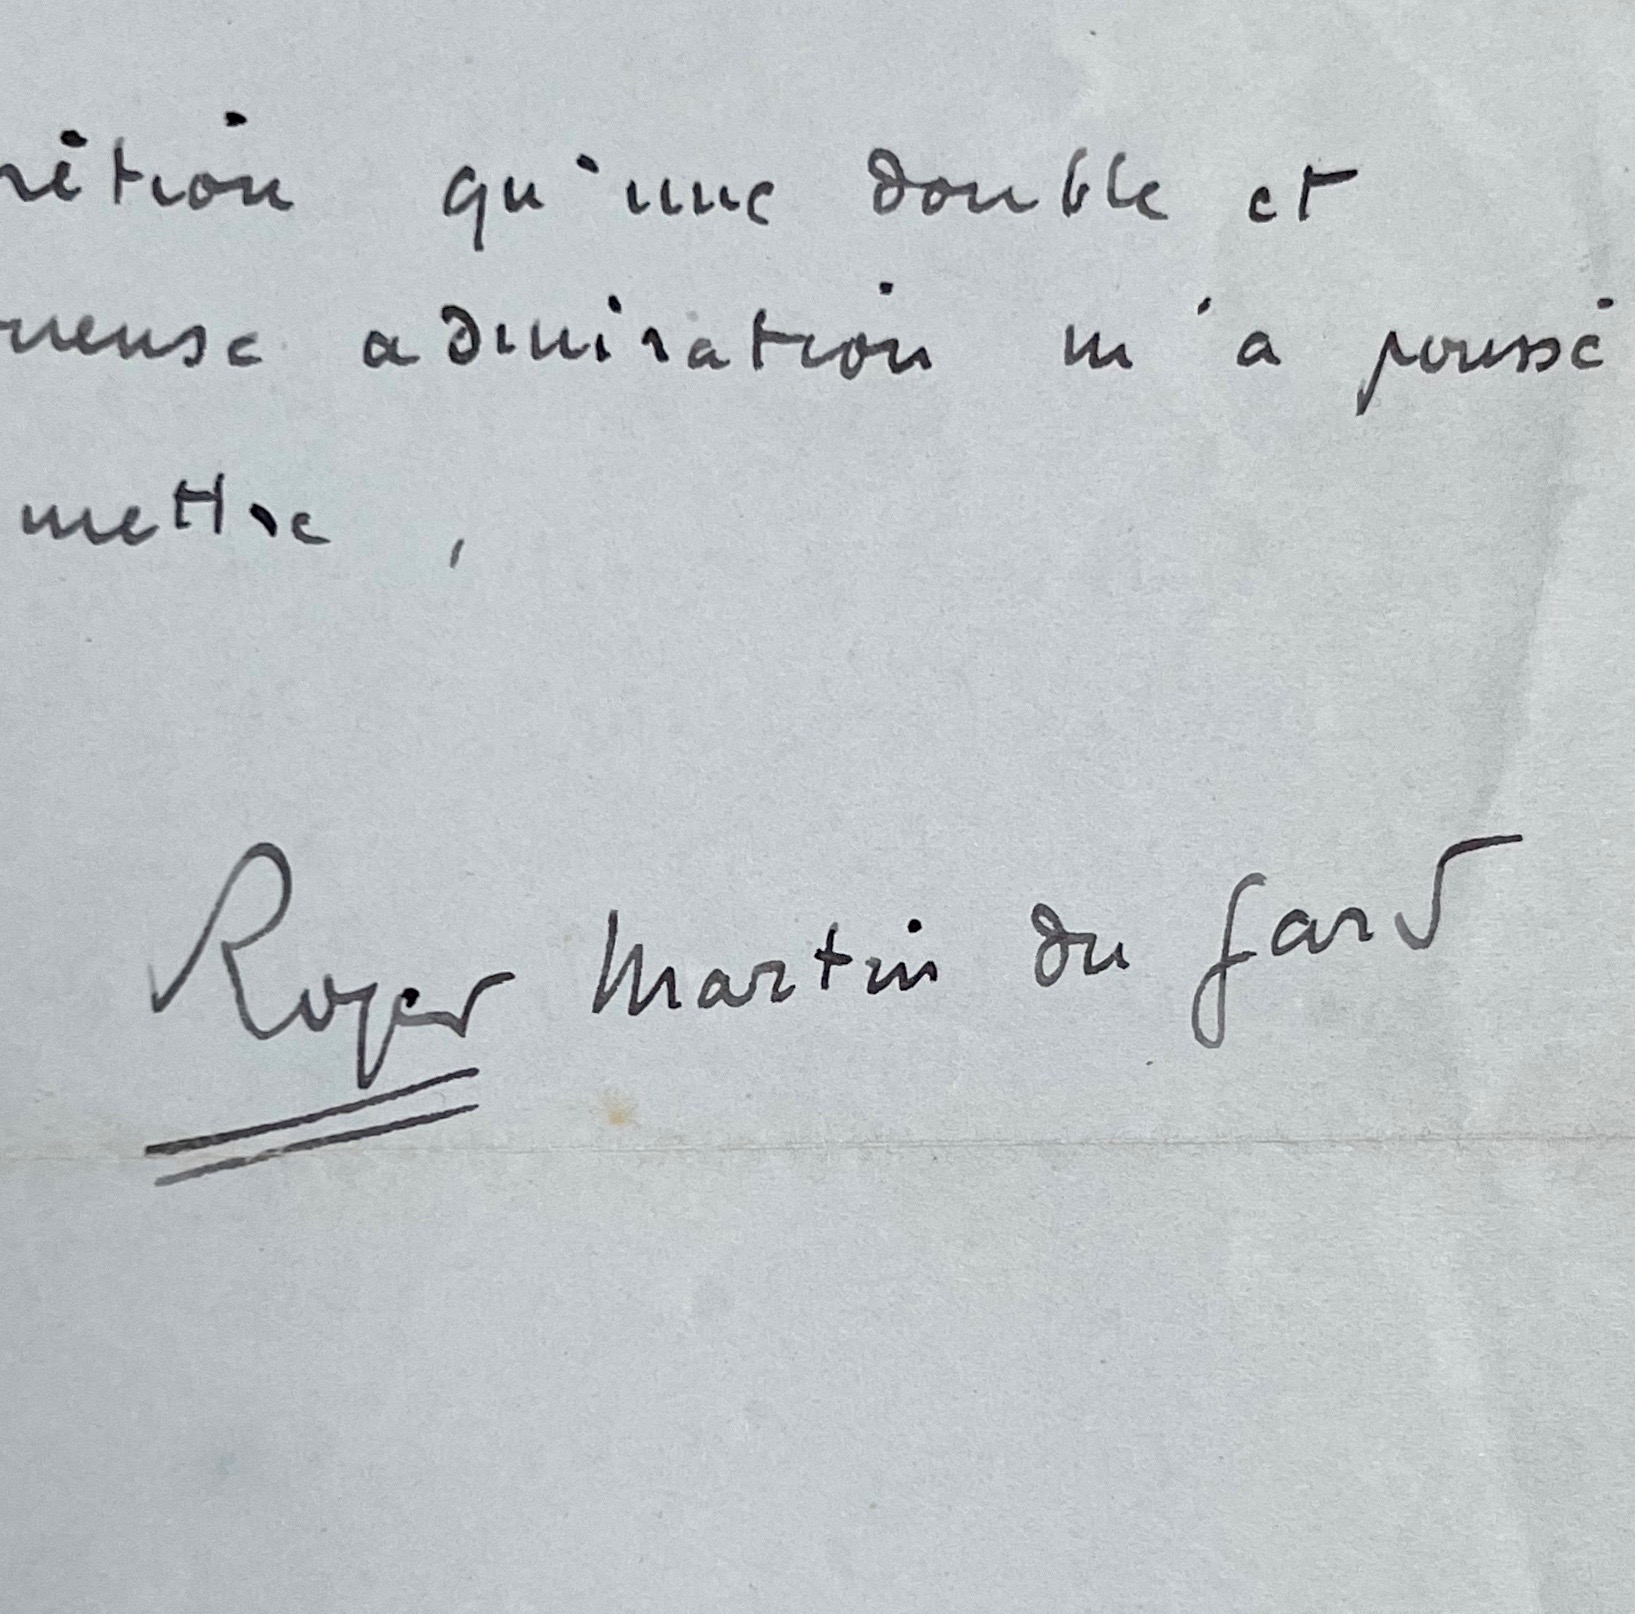 rétion qu'une double et
ueuse admiration m'a poussé
mettre,
Roger Martin du Gard